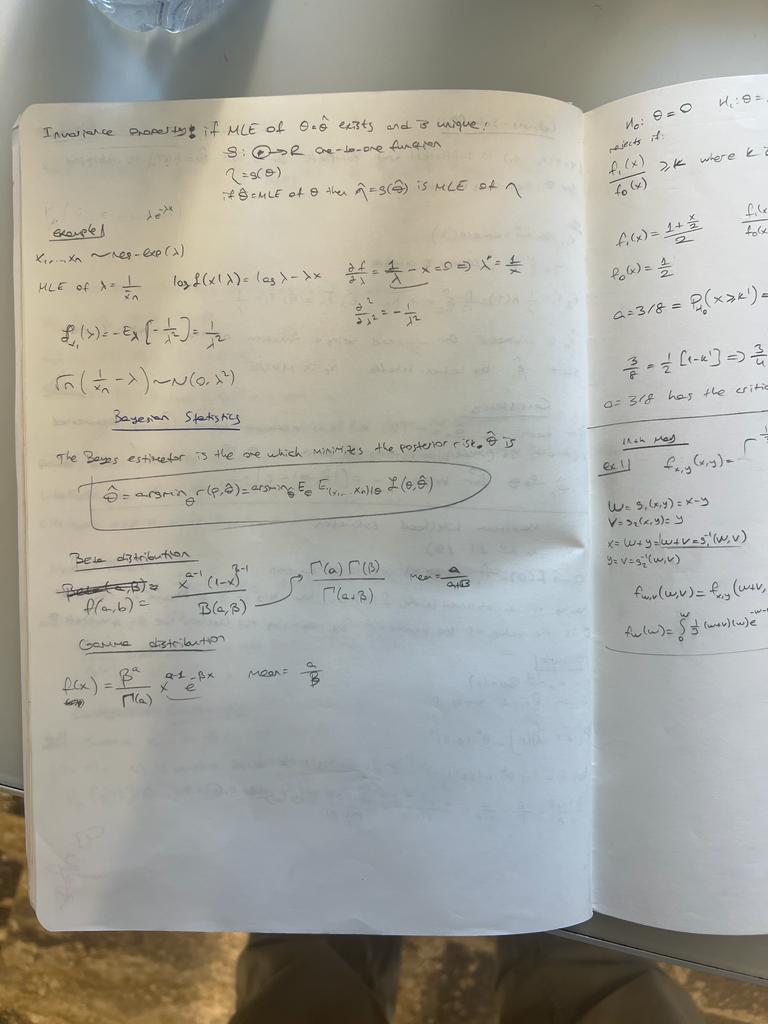 Invariance Property: if MLE of θ=θ̂ exists and is unique:
g: Θ→R one-to-one function
η=g(θ)
if θ̂=MLE of θ then η̂=g(θ̂) is MLE of η
λe^-λx
example 1
x₁,...,xₙ ~ neg-exp(λ)
MLE of λ = 1/x̄ₙ log f(x|λ) = log λ - λx ∂f/∂λ = 1/λ - x = 0 ⇒ λ̂ = 1/x
∂²/∂λ² = -1/λ²
(λ) = -E_λ[-1/λ²] = 1/λ²
√n(1/x̄ₙ - λ) ~ N(0, λ²)
Bayesian Statistics
The Bayes estimator is the one which minimizes the posterior risk. θ̂ is
θ̂ = argmin_θ r(p,θ̂) = argmin_θ E_θ E_(x₁,...xₙ)|θ L(θ,θ̂)
Beta distribution
f(a,b) = x^(a-1) (1-x)^(β-1) / B(a,β) → Γ(a) Γ(β) / Γ(a+β) mean = a/(a+β)
Gamma distribution
f(x) = β^a/Γ(a) x^(a-1) e^(-βx) mean = a/β
H₀: θ=0 H₁: θ=
rejects if:
f₁(x)/f₀(x) ≥ k where k
f₁(x) = (1+x/2)/2 f₁(x)/f₀(x)
f₀(x) = 1/2
a = 3/8 = P_H₀(x ≥ k') =
3/8 = 1/2 [1-k'] ⇒ 3/4
a = 3/8 has the critic
ex.1 f_x,y(x,y) =
W = g₁(x,y) = x-y
V = g₂(x,y) = y
x = w+y = w+v = g₁⁻¹(w,v)
y = v = g₂⁻¹(w,v)
f_w,v(w,v) = f_x,y(w+v,